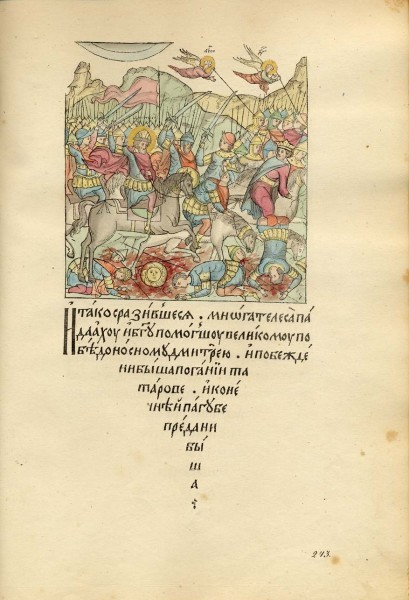 И такоसразившеся · мнѡга телеса па
дааху и бг҃у помогшоу великомоу по
бѣдоносному дмитрею · и побежде
ни быша погании та
тарове · и коне
чнѣй пагубе
предани
бы
ш
а
243.